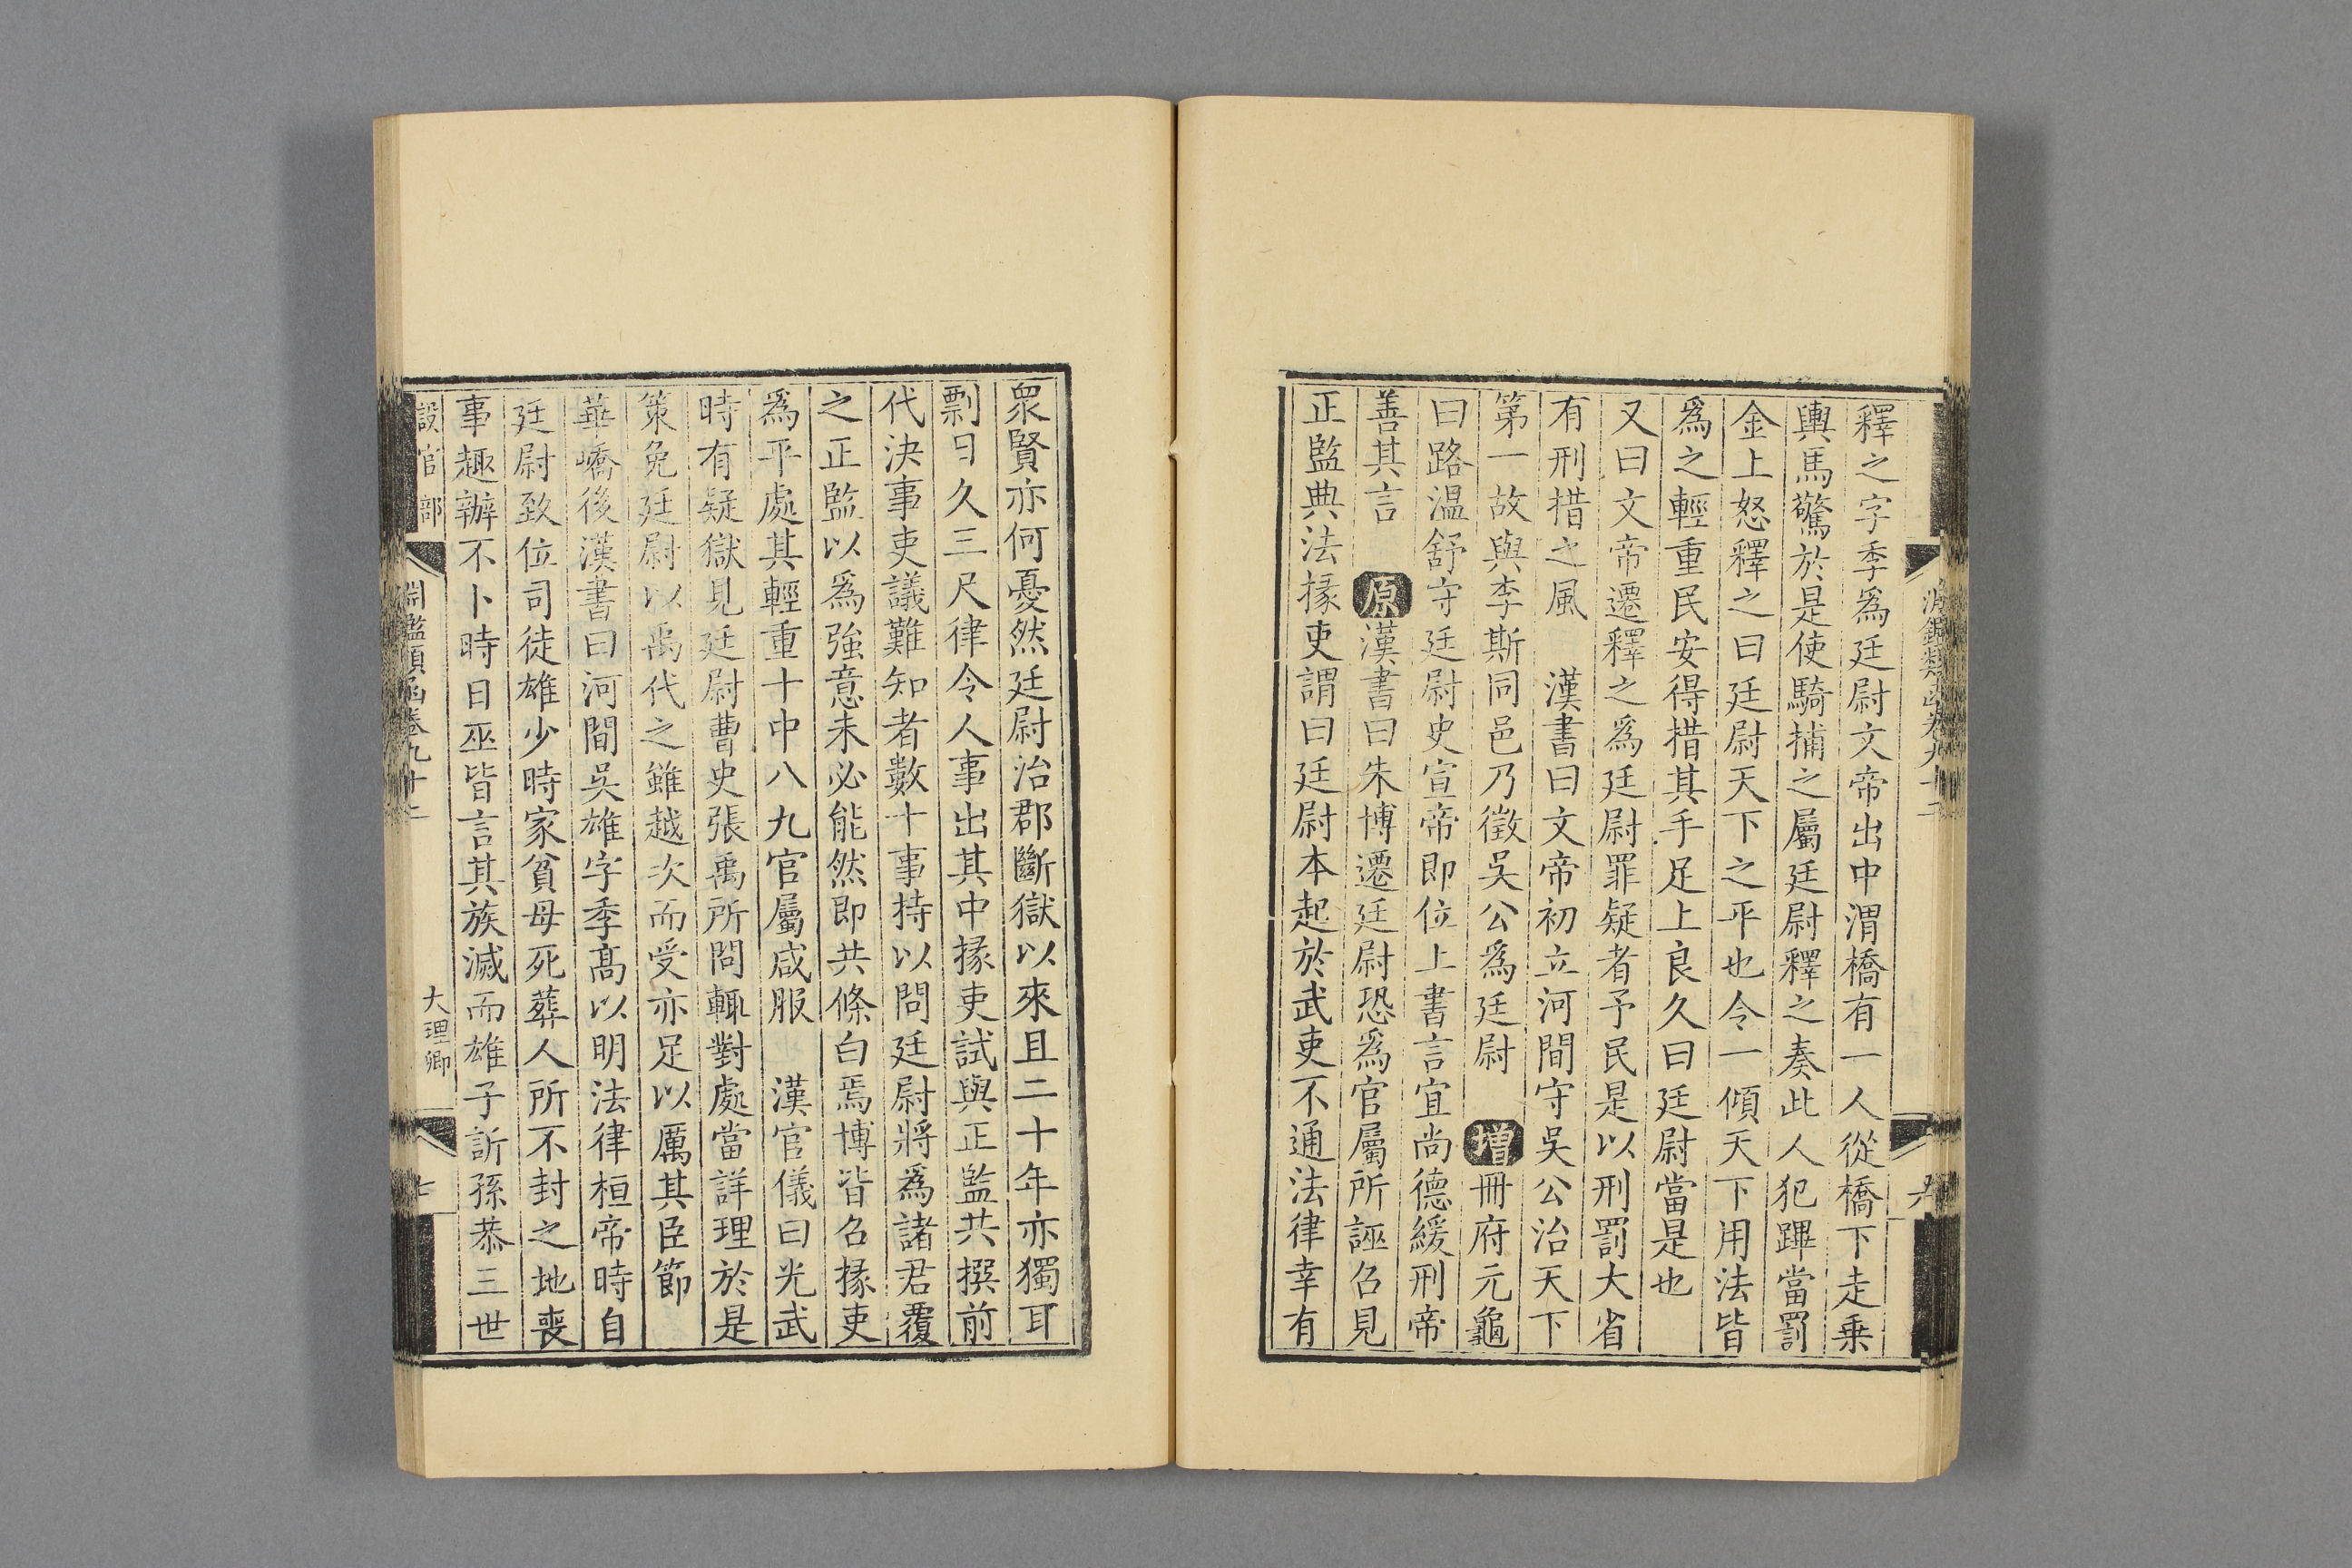 釋之字季爲廷尉文帝出中渭橋有一人從橋下走乗
輿馬驚於是使騎捕之屬廷尉釋之奏此人犯蹕當罰
金上怒釋之曰廷尉天下之平也令一傾天下用法皆
爲之輕重民安得措其手足上良久曰廷尉當是也
又曰文帝遷釋之爲廷尉罪疑者予民是以刑罰大省
有刑措之風　漢書曰文帝初立河間守吳公治天下
第一故與李斯同邑乃徵吳公爲廷尉　増冊府元龜
曰路溫舒守廷尉史宣帝即位上書言宜尚德緩刑帝
善其言　原漢書曰朱博遷廷尉恐爲官屬所誣召見
正監典法掾吏謂曰廷尉本起於武吏不通法律幸有
眾賢亦何憂然廷尉治郡斷獄以來且二十年亦獨耳
剽日久三尺律令人事出其中掾吏試與正監共撰前
代決事吏議難知者數十事持以問廷尉將爲諸君覆
之正監以爲強意未必能然即共條白焉博皆召掾吏
爲平處其輕重十中八九官屬咸服　漢官儀曰光武
時有疑獄見廷尉曹史張禹所問輒對處當詳理於是
策免廷尉以禹代之雖越次而受亦足以厲其臣節
華嶠後漢書曰河間吳雄字季髙以明法律桓帝時自
廷尉致位司徒雄少時家貧母死葬人所不封之地喪
事趣辦不卜時日巫皆言其族滅而雄子訢孫恭三世
設官部
淵鑑類函卷九十二
大理卿
七